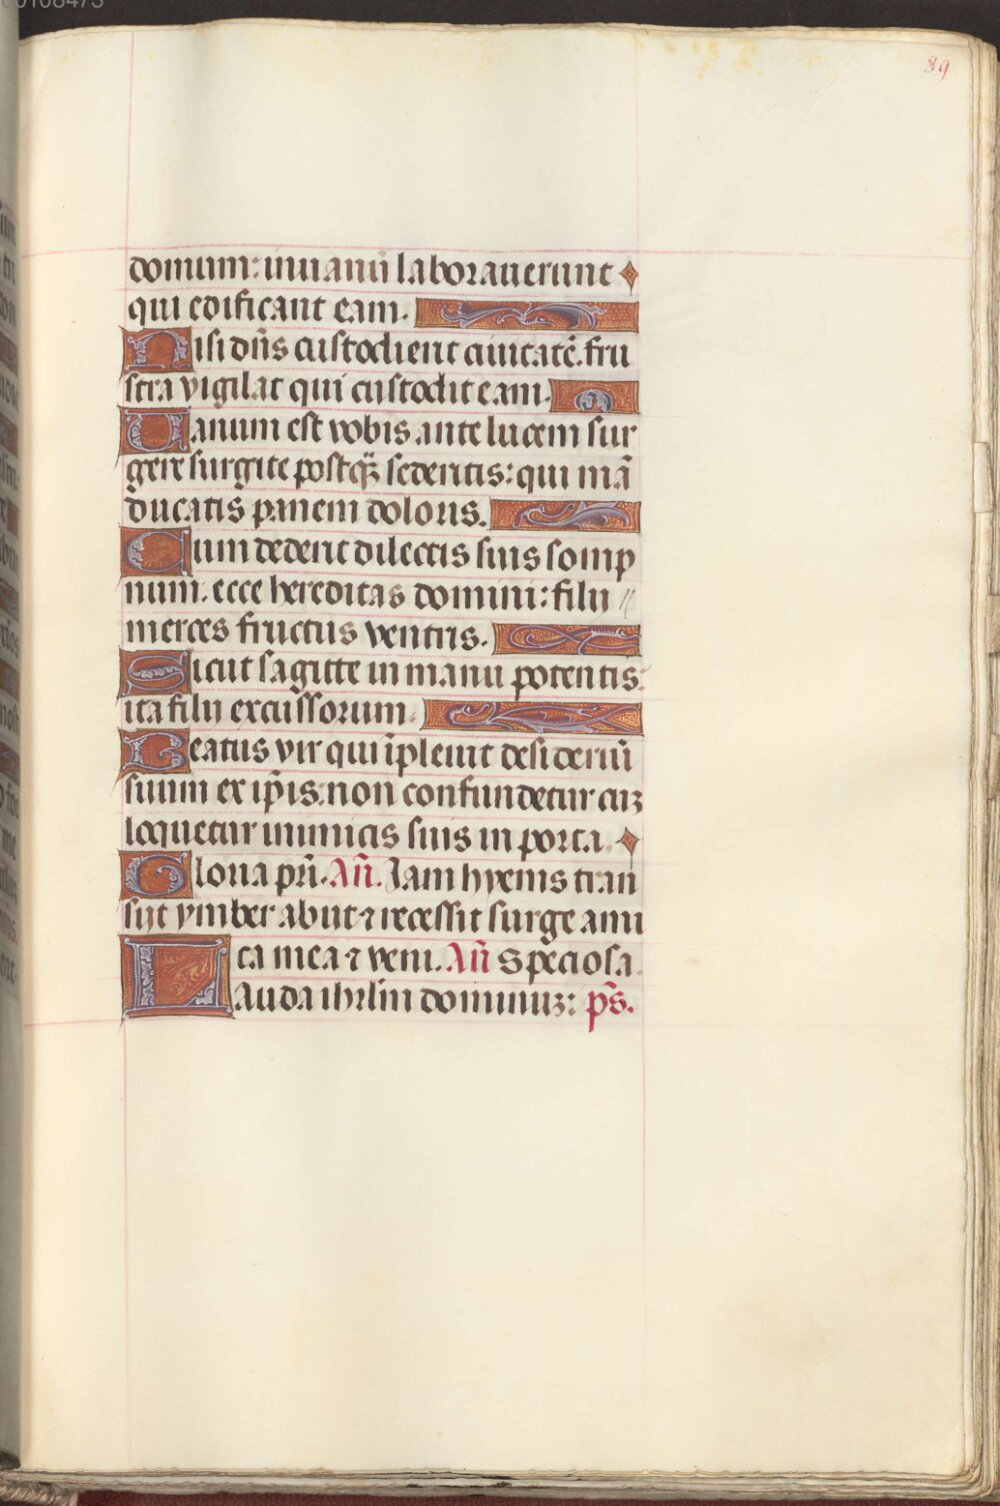 89
domum: inuanũ laborauerunt
qui edificant eam.
Nisi dñs custodierit ciuitatẽ. fru
stra vigilat qui custodit eam.
Uanum est vobis ante lucem sur
gere surgite postq̃ sederitis: qui mã
ducatis panem doloris.
Cum dederit dilectis suis somp
num. ecce hereditas domini: filii
merces fructus ventris.
Sicut sagitte in manu potentis:
ita filii excussorum.
Beatus vir qui ĩpleuit desideriũ
suum ex ip̃is: non confundetur cuz
loquetur inimicis suis in porta.
Gloria pr̃i. Añ. Iam hyems tran
siit ymber abiit ⁊ recessit surge ami
ca mea ⁊ veni. Añ Speciosa.
Lauda ihrl̃m dominuz: p̃s.